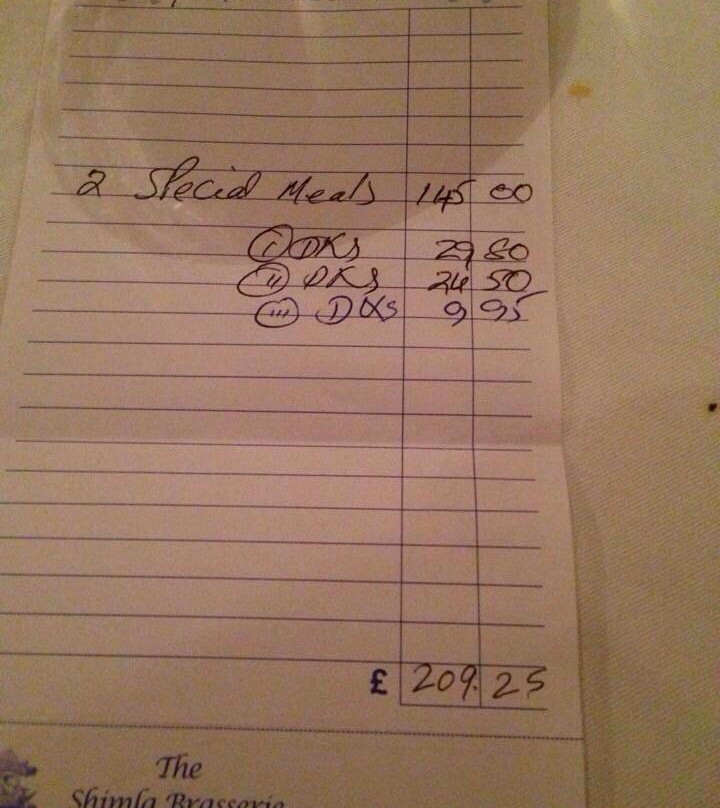 2 Special Meals 145 00
(i) DKS 29 80
(ii) DKS 24 50
(iii) DKS 9 95
£ 209.25
The
Shimla Brasserie